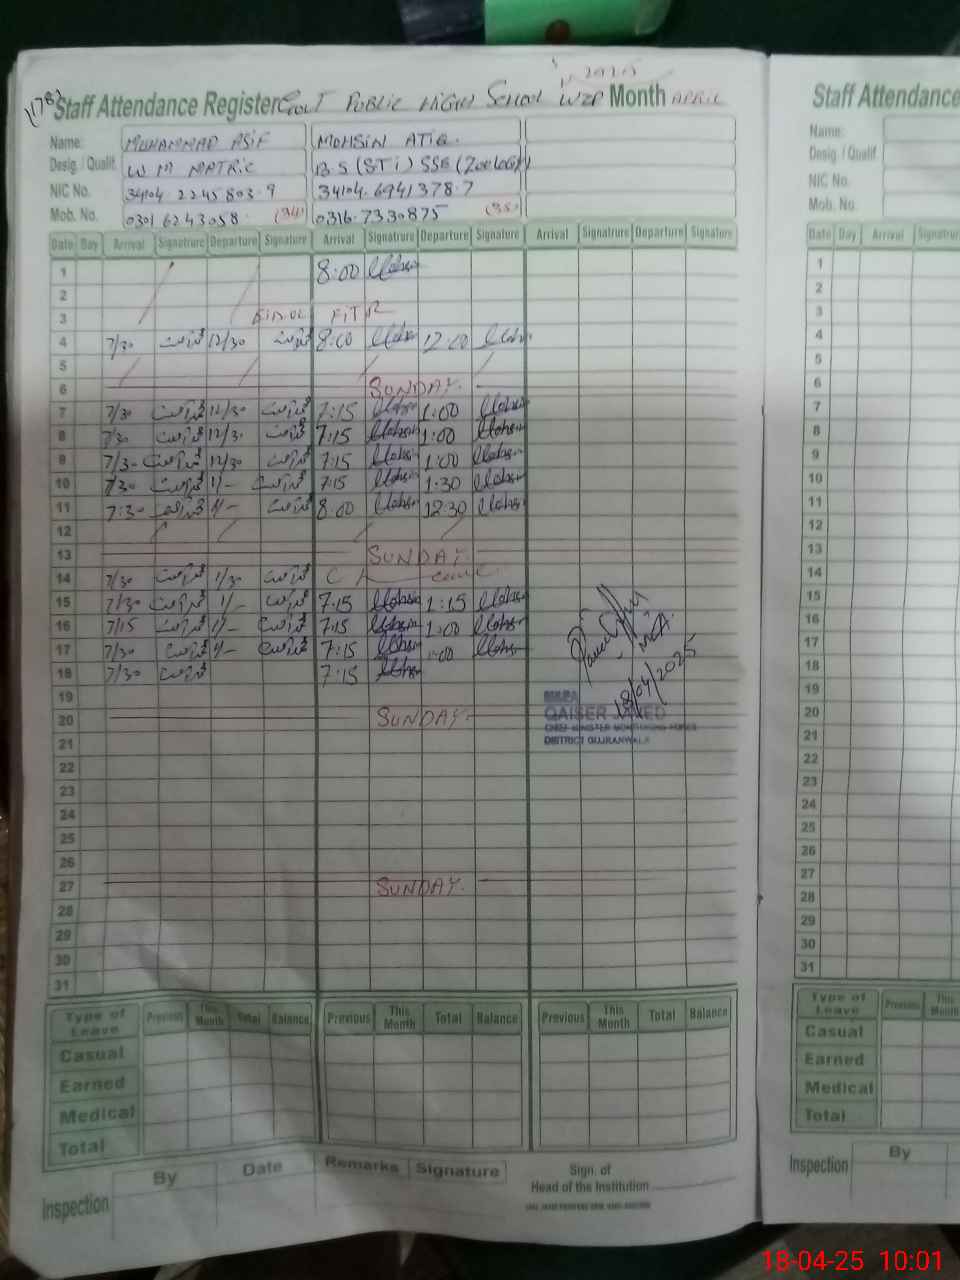 2025
(178) Staff Attendance Register GOVT PUBLIC HIGH SCHOOL WZP Month APRIL
Name: MUHAMMAD ASIF MOHSIN ATIQ.
Desig. / Qualif. W M MATRIC BS (STI) SSE (Zoology)
NIC No. 34104 2245803.9 34104.6941378.7
Mob. No. 0301 6243058. (34) 0316.7330875 (35)
Date Day Arrival Signatrure Departure Signature Arrival Signatrure Departure Signature Arrival Signatrure Departure Signature
1 8:00 Mohsin
2
3 EID UL FITR
4 7/30 محمد آصف 12/30 محمد آصف 8:00 Mohsin 12:00 Mohsin
5
6 SUNDAY.
7 7/30 محمد آصف 12/30 محمد آصف 7:15 Mohsin 1:00 Mohsin
8 7/30 محمد آصف 12/30 محمد آصف 7:15 Mohsin 1:00 Mohsin
9 7/30 محمد آصف 12/30 محمد آصف 7:15 Mohsin 1:00 Mohsin
10 7/30 محمد آصف 1/- محمد آصف 7:15 Mohsin 1:30 Mohsin
11 7:30 محمد آصف 1/- محمد آصف 8:00 Mohsin 12:30 Mohsin
12
13 SUNDAY.
14 7/30 محمد آصف 1/30 محمد آصف C
15 7/30 محمد آصف 1/- محمد آصف 7:15 Mohsin 1:15 Mohsin
16 7/15 محمد آصف 1/- محمد آصف 7:15 Mohsin 1:00 Mohsin
17 7/30 محمد آصف 1/- محمد آصف 7:15 Mohsin 1:00 Mohsin
18 7/30 محمد آصف 7:15 Mohsin
19
20 SUNDAY.
21
22
23
24
25
26
27 SUNDAY.
28
29
30
31
MEA.
18/04/2025
QAISER JAVED
CHIEF MINISTER MONITORING FORCE
DISTRICT GUJRANWALA
Type of Leave Previous This Month Total Balance Previous This Month Total Balance Previous This Month Total Balance
Casual
Earned
Medical
Total
Inspection By Date Remarks Signature
Sign. of
Head of the Institution
Staff Attendance
Name:
Desig. / Qualif.
NIC No.
Mob. No.
Date Day Arrival
1
2
3
4
5
6
7
8
9
10
11
12
13
14
15
16
17
18
19
20
21
22
23
24
25
26
27
28
29
30
31
Type of Leave Previous This
Casual
Earned
Medical
Total
Inspection By
18-04-25 10:01